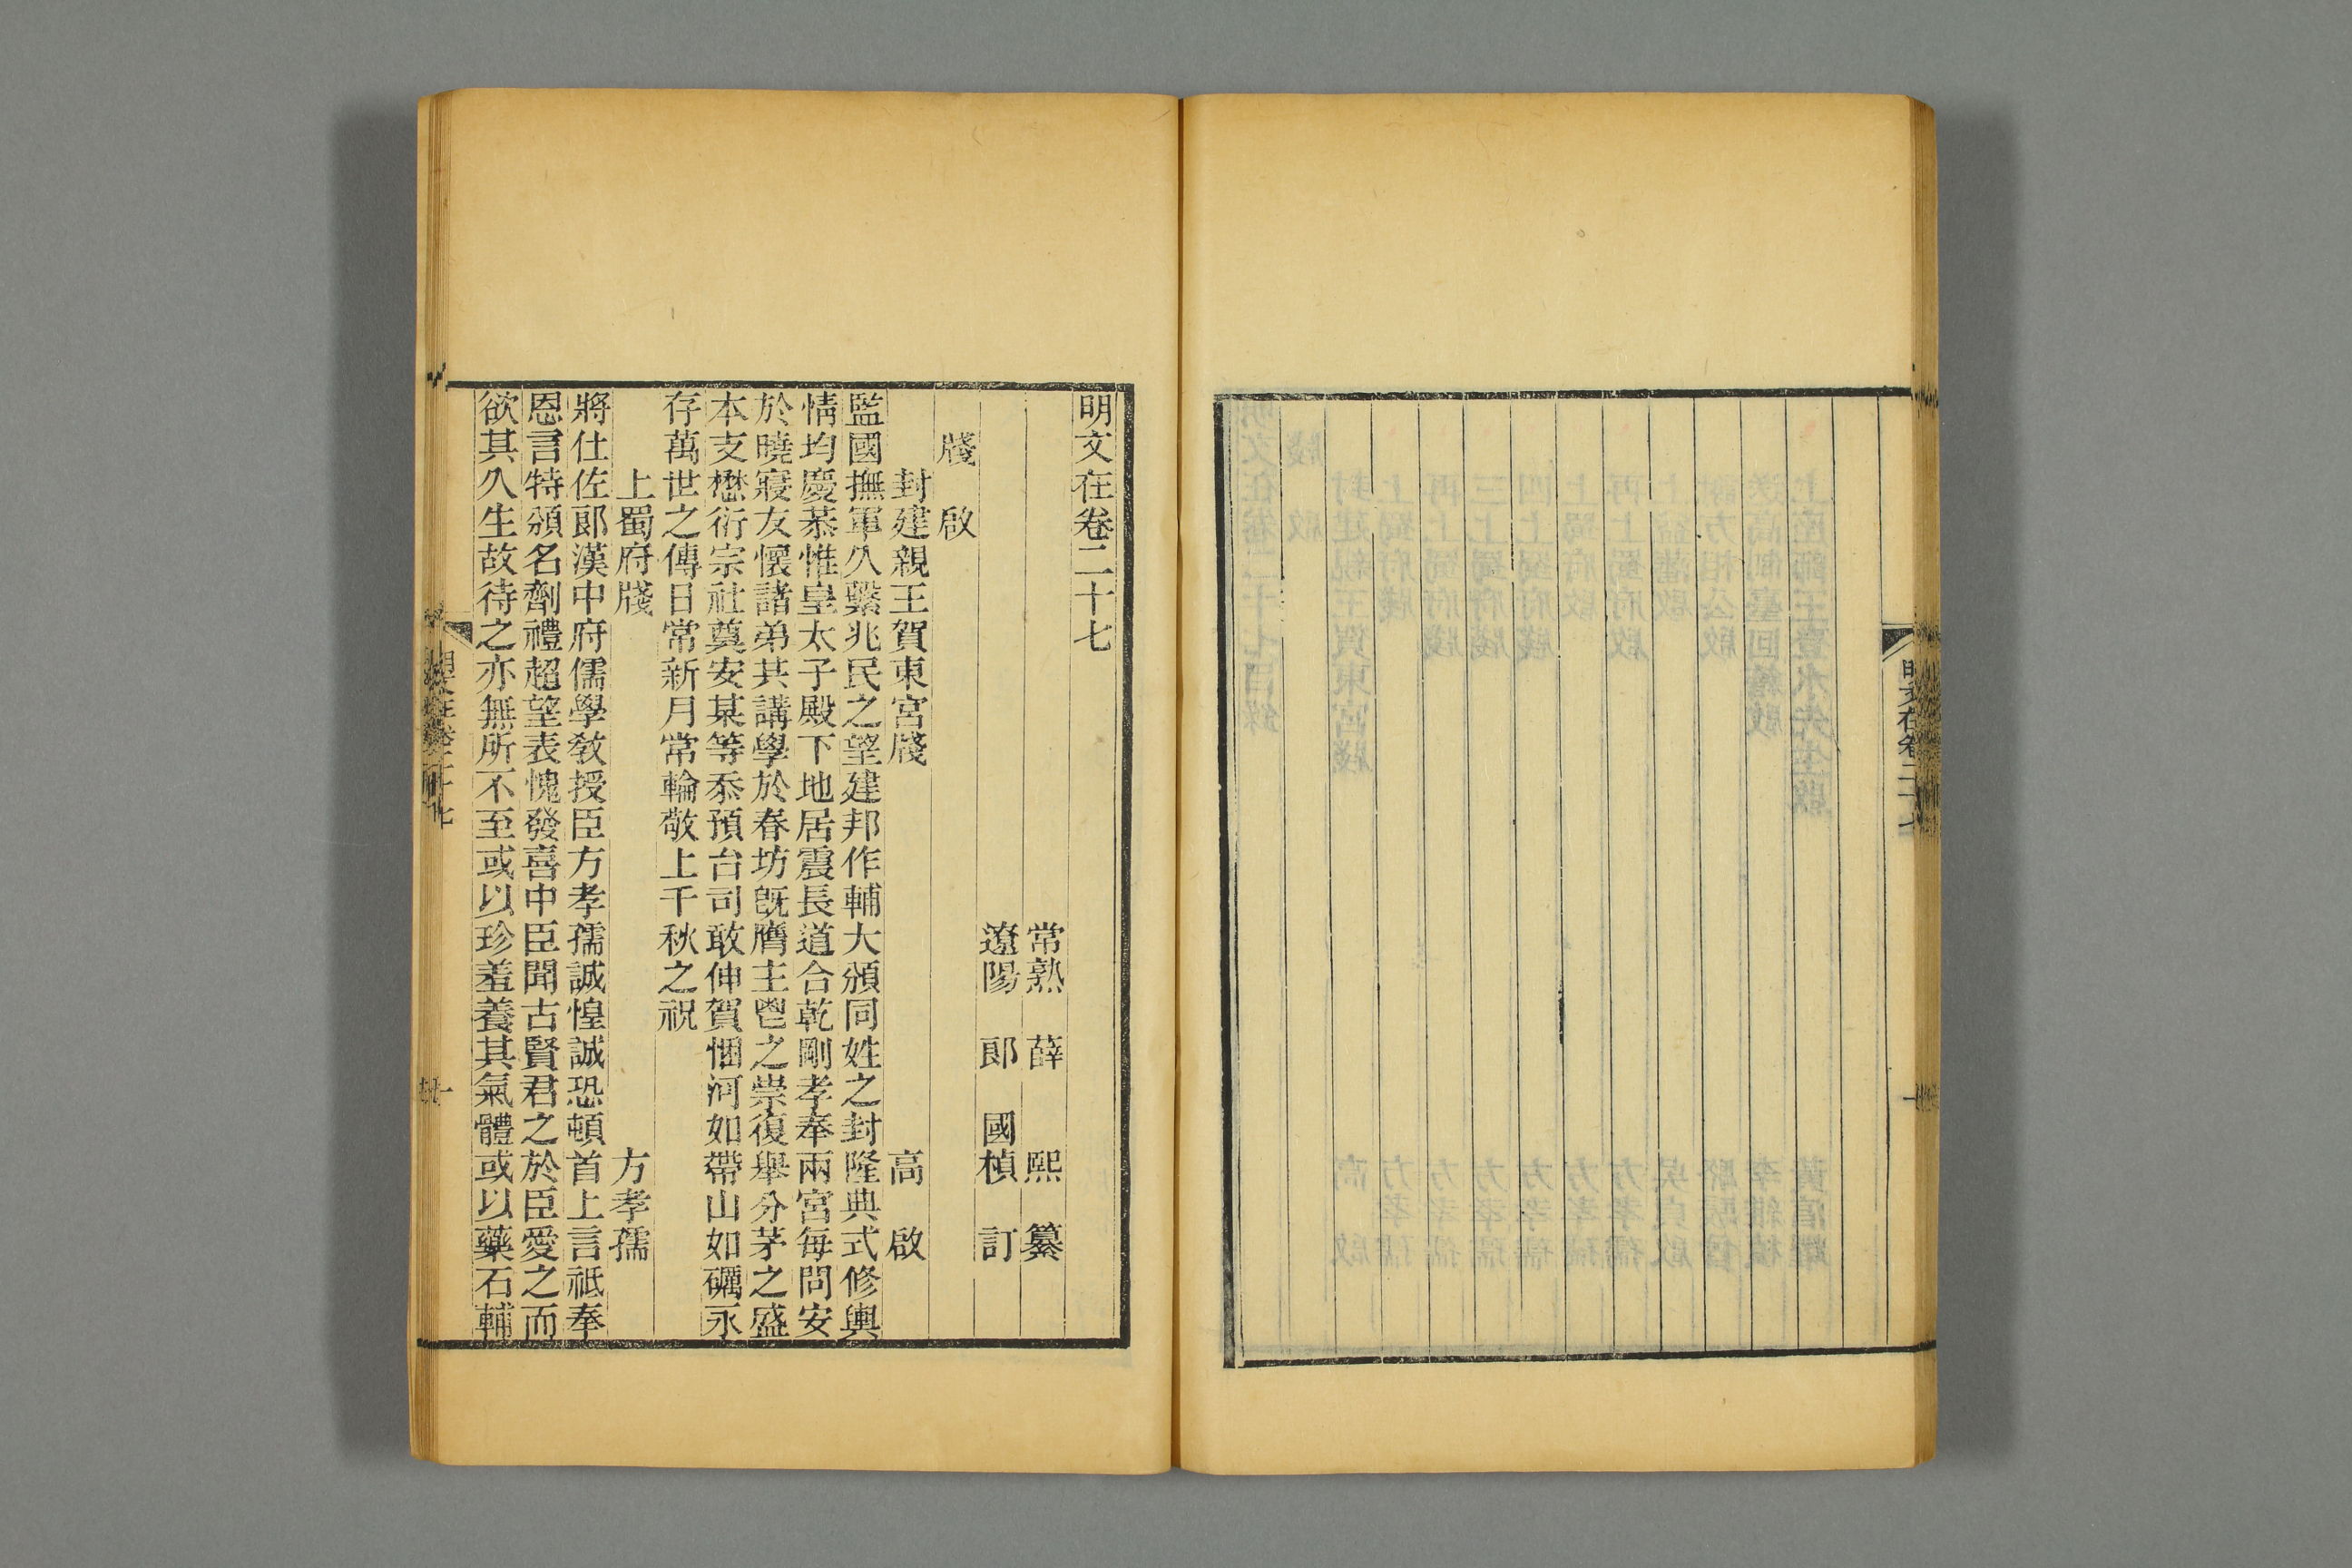 明文在卷二十七
明文在卷二十七
常熟 薛 熙 纂
遼陽 郎 國楨 訂
牋 啟
封建親王賀東宮牋 高 啟
監國撫軍久繫兆民之望建邦作輔大頒同姓之封隆典式修輿
情均慶恭惟皇太子殿下地居震長道合乾剛孝奉兩宮每問安
於曉寢友懷諸弟共講學於春坊既膺主鬯之崇復舉分茅之盛
本支懋衍宗社奠安某等忝預台司敢伸賀悃河如帶山如礪永
存萬世之傳日常新月常輪敬上千秋之祝
上蜀府牋 方孝孺
將仕佐郎漢中府儒學教授臣方孝孺誠惶誠恐頓首上言祗奉
恩言特頒名劑禮超望表愧發喜中臣聞古賢君之於臣愛之而
欲其久生故待之亦無所不至或以珍羞養其氣體或以藥石輔